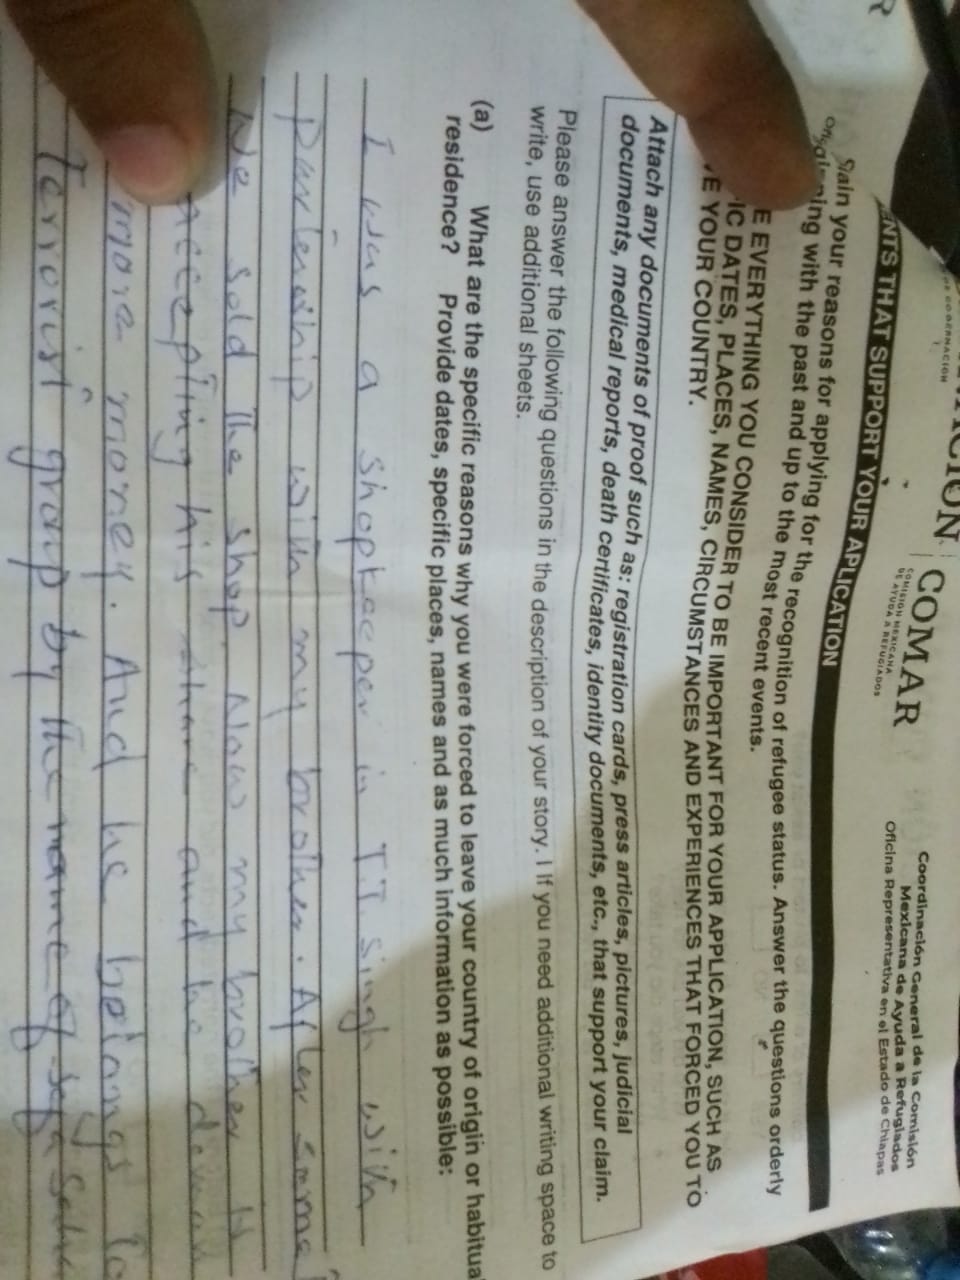 COMAR
COMISIÓN MEXICANA
DE AYUDA A REFUGIADOS
Coordinación General de la Comisión
Mexicana de Ayuda a Refugiados
Oficina Representativa en el Estado de Chiapas
ENTS THAT SUPPORT YOUR APLICATION
your reasons for applying for the recognition of refugee status. Answer the questions orderly
with the past and up to the most recent events.
E EVERYTHING YOU CONSIDER TO BE IMPORTANT FOR YOUR APPLICATION, SUCH AS
IC DATES, PLACES, NAMES, CIRCUMSTANCES AND EXPERIENCES THAT FORCED YOU TO
YOUR COUNTRY.
Attach any documents of proof such as: registration cards, press articles, pictures, judicial
documents, medical reports, death certificates, identity documents, etc., that support your claim.
Please answer the following questions in the description of your story. I If you need additional writing space to
write, use additional sheets.
(a) What are the specific reasons why you were forced to leave your country of origin or habitua
residence? Provide dates, specific places, names and as much information as possible:
I was a shopkeeper in T.T. Singh with
partenship with my brother. After some
We sold the shop. Now my brother
accepting his share and he
more money. And he belongs to
Terrorist group by the name of